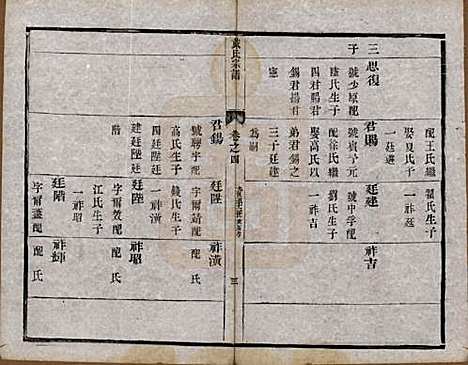 配王氏繼
娶夏氏子
一廷遴
三
子
思復
號少原配
陸氏生子
四君賜君
錫君揚君
憲
君賜
號賓予元
配徐氏繼
娶高氏以
弟君錫之
三子廷建
為嗣
翟氏生子
一祚延
廷建
號中孚配
劉氏生子
一祚吉
祚吉
氏宗譜
卷之四
三
君錫
號聘宇配
高氏生子
三廷陞廷
建廷
階
廷陞
字爾
配
錢氏生子
一祚潢
廷陛
字爾
配
江氏生子
一祚昭
廷階
字爾
配
氏
祚潢
配
氏
祚昭
配
氏
祚輝
配
氏